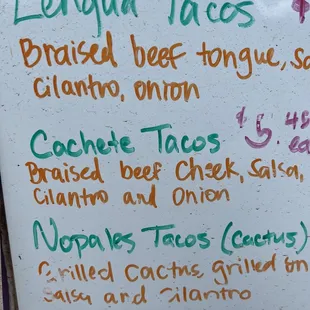 Lengua Tacos $
Braised beef tongue, sa
cilantro, onion
Cachete Tacos $5.45 ea
Braised beef Cheek, Salsa,
Cilantro and Onion
Nopales Tacos (cactus)
Grilled cactus, grilled on
Salsa and Cilantro